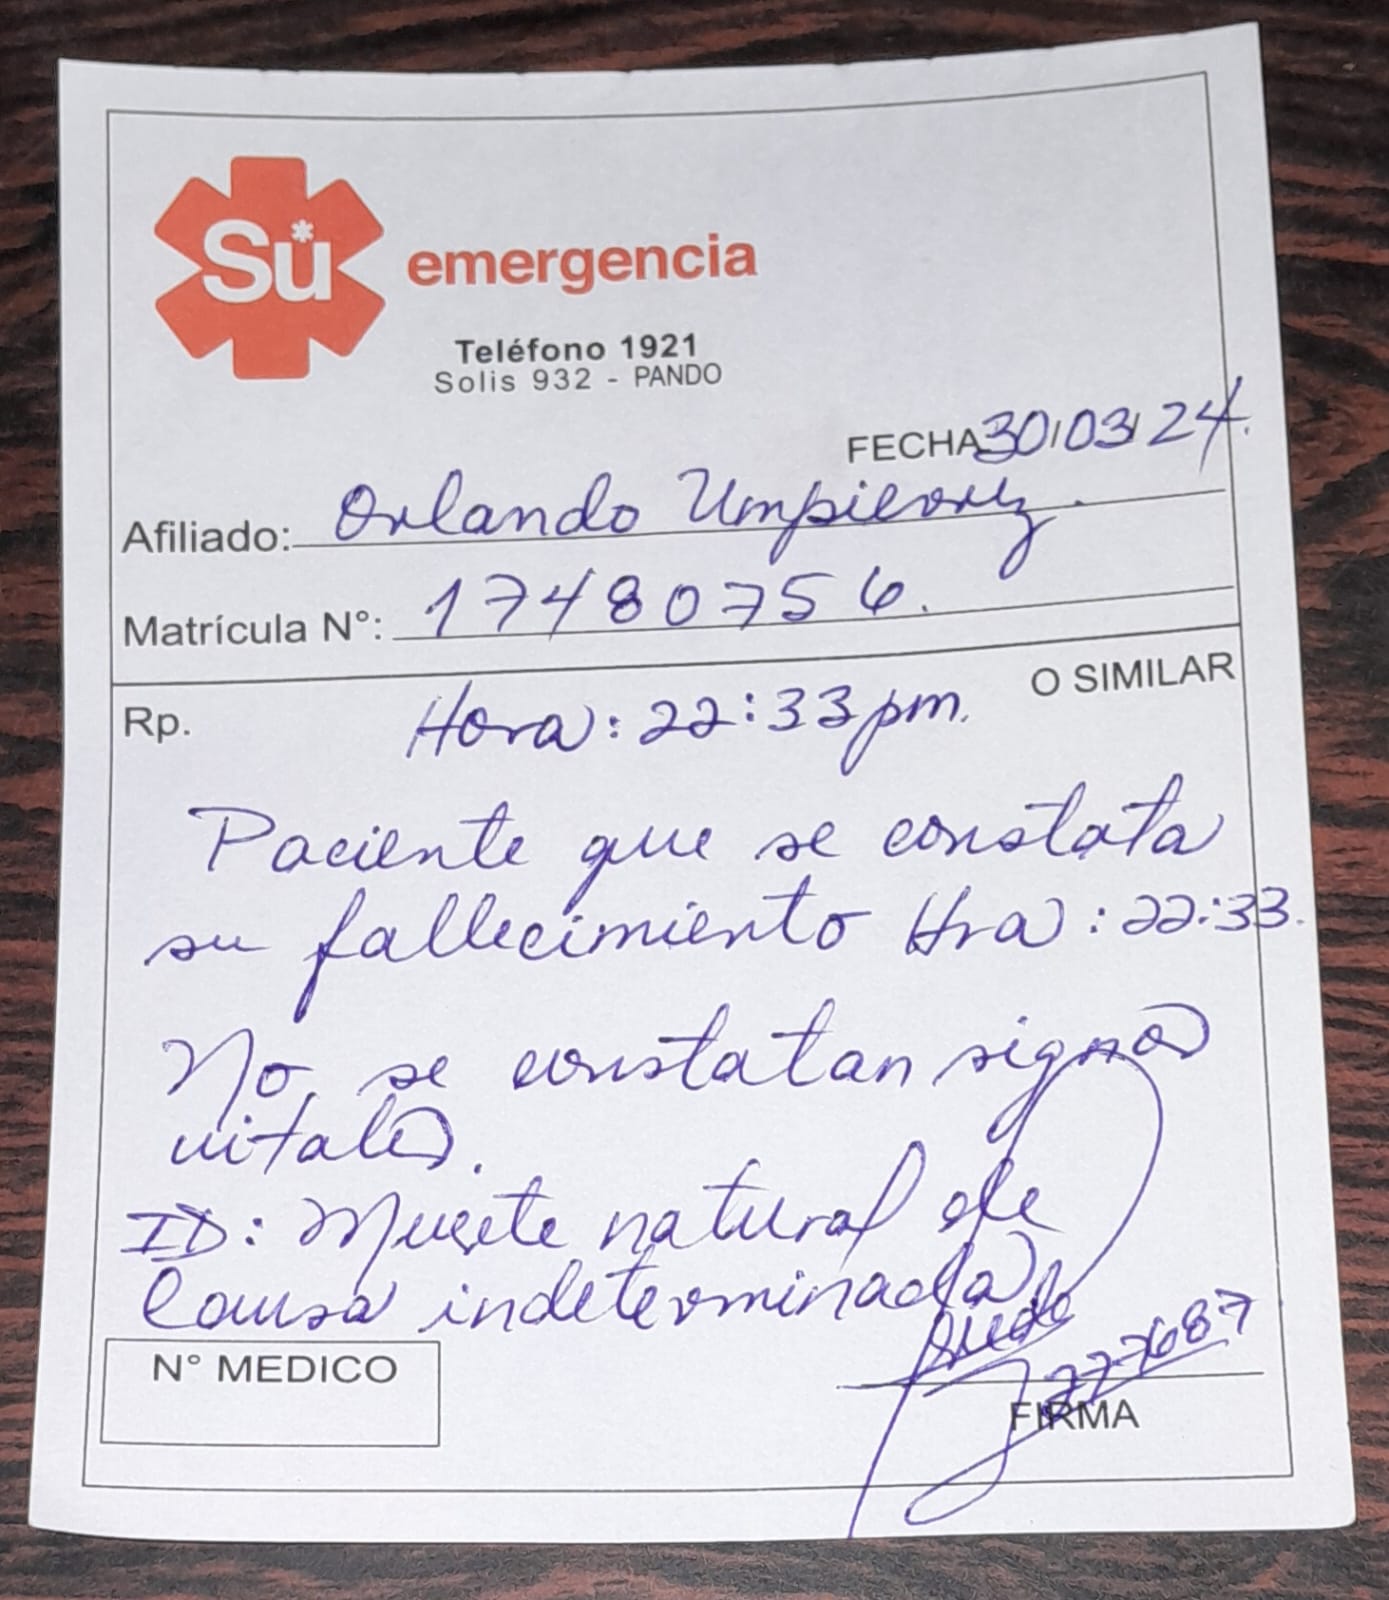 Sü emergencia
Teléfono 1921
Solis 932 - PANDO
FECHA 30/03/24.
Afiliado: Orlando Umpierrez.
Matrícula N°: 17480756.
O SIMILAR
Rp. Hora: 22:33 pm.
Paciente que se constata
su fallecimiento Hra: 22:33.
No se constatan signos
vitales.
ID: Muerte natural de
Causa indeterminada
N° MEDICO
FIRMA